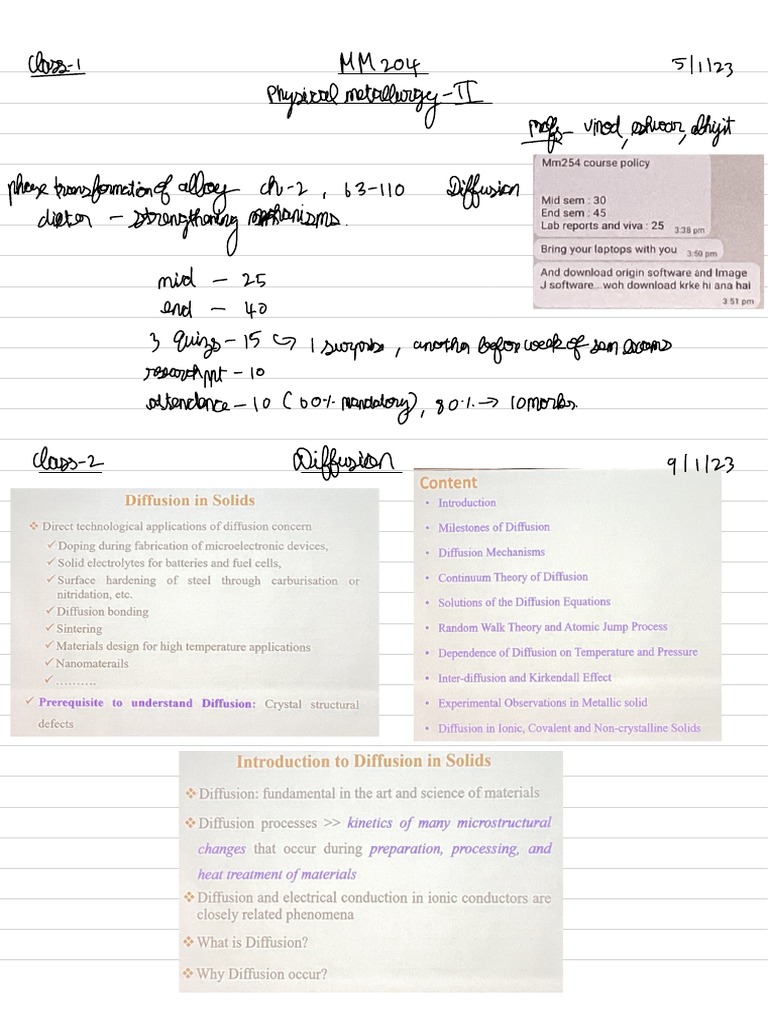 Class-1
MM204
5/1/23
Physical metallurgy-II
Profs- Vinod, eshwar, abhijit
phase transformation of alloy ch-2, 63-110 Diffusion
dieter - strengthening mechanisms.
Mm254 course policy
Mid sem : 30
End sem : 45
Lab reports and viva : 25 3:38 pm
Bring your laptops with you 3:50 pm
And download origin software and Image
J software...woh download krke hi ana hai
3:51 pm
mid - 25
end - 40
3 Quizs - 15 ↪ 1 surprise, another before week of sem exams
research ppt - 10
attendance - 10 (60% mandatory), 80% → 10marks.
Class-2
Diffusion
9/1/23
Diffusion in Solids
❖ Direct technological applications of diffusion concern
✓ Doping during fabrication of microelectronic devices,
✓ Solid electrolytes for batteries and fuel cells,
✓ Surface hardening of steel through carburisation or
nitridation, etc.
✓ Diffusion bonding
✓ Sintering
✓ Materials design for high temperature applications
✓ Nanomaterails
✓ ..........
✓ Prerequisite to understand Diffusion: Crystal structural
defects
Content
• Introduction
• Milestones of Diffusion
• Diffusion Mechanisms
• Continuum Theory of Diffusion
• Solutions of the Diffusion Equations
• Random Walk Theory and Atomic Jump Process
• Dependence of Diffusion on Temperature and Pressure
• Inter-diffusion and Kirkendall Effect
• Experimental Observations in Metallic solid
• Diffusion in Ionic, Covalent and Non-crystalline Solids
Introduction to Diffusion in Solids
❖ Diffusion: fundamental in the art and science of materials
❖ Diffusion processes >> kinetics of many microstructural
changes that occur during preparation, processing, and
heat treatment of materials
❖ Diffusion and electrical conduction in ionic conductors are
closely related phenomena
❖ What is Diffusion?
❖ Why Diffusion occur?